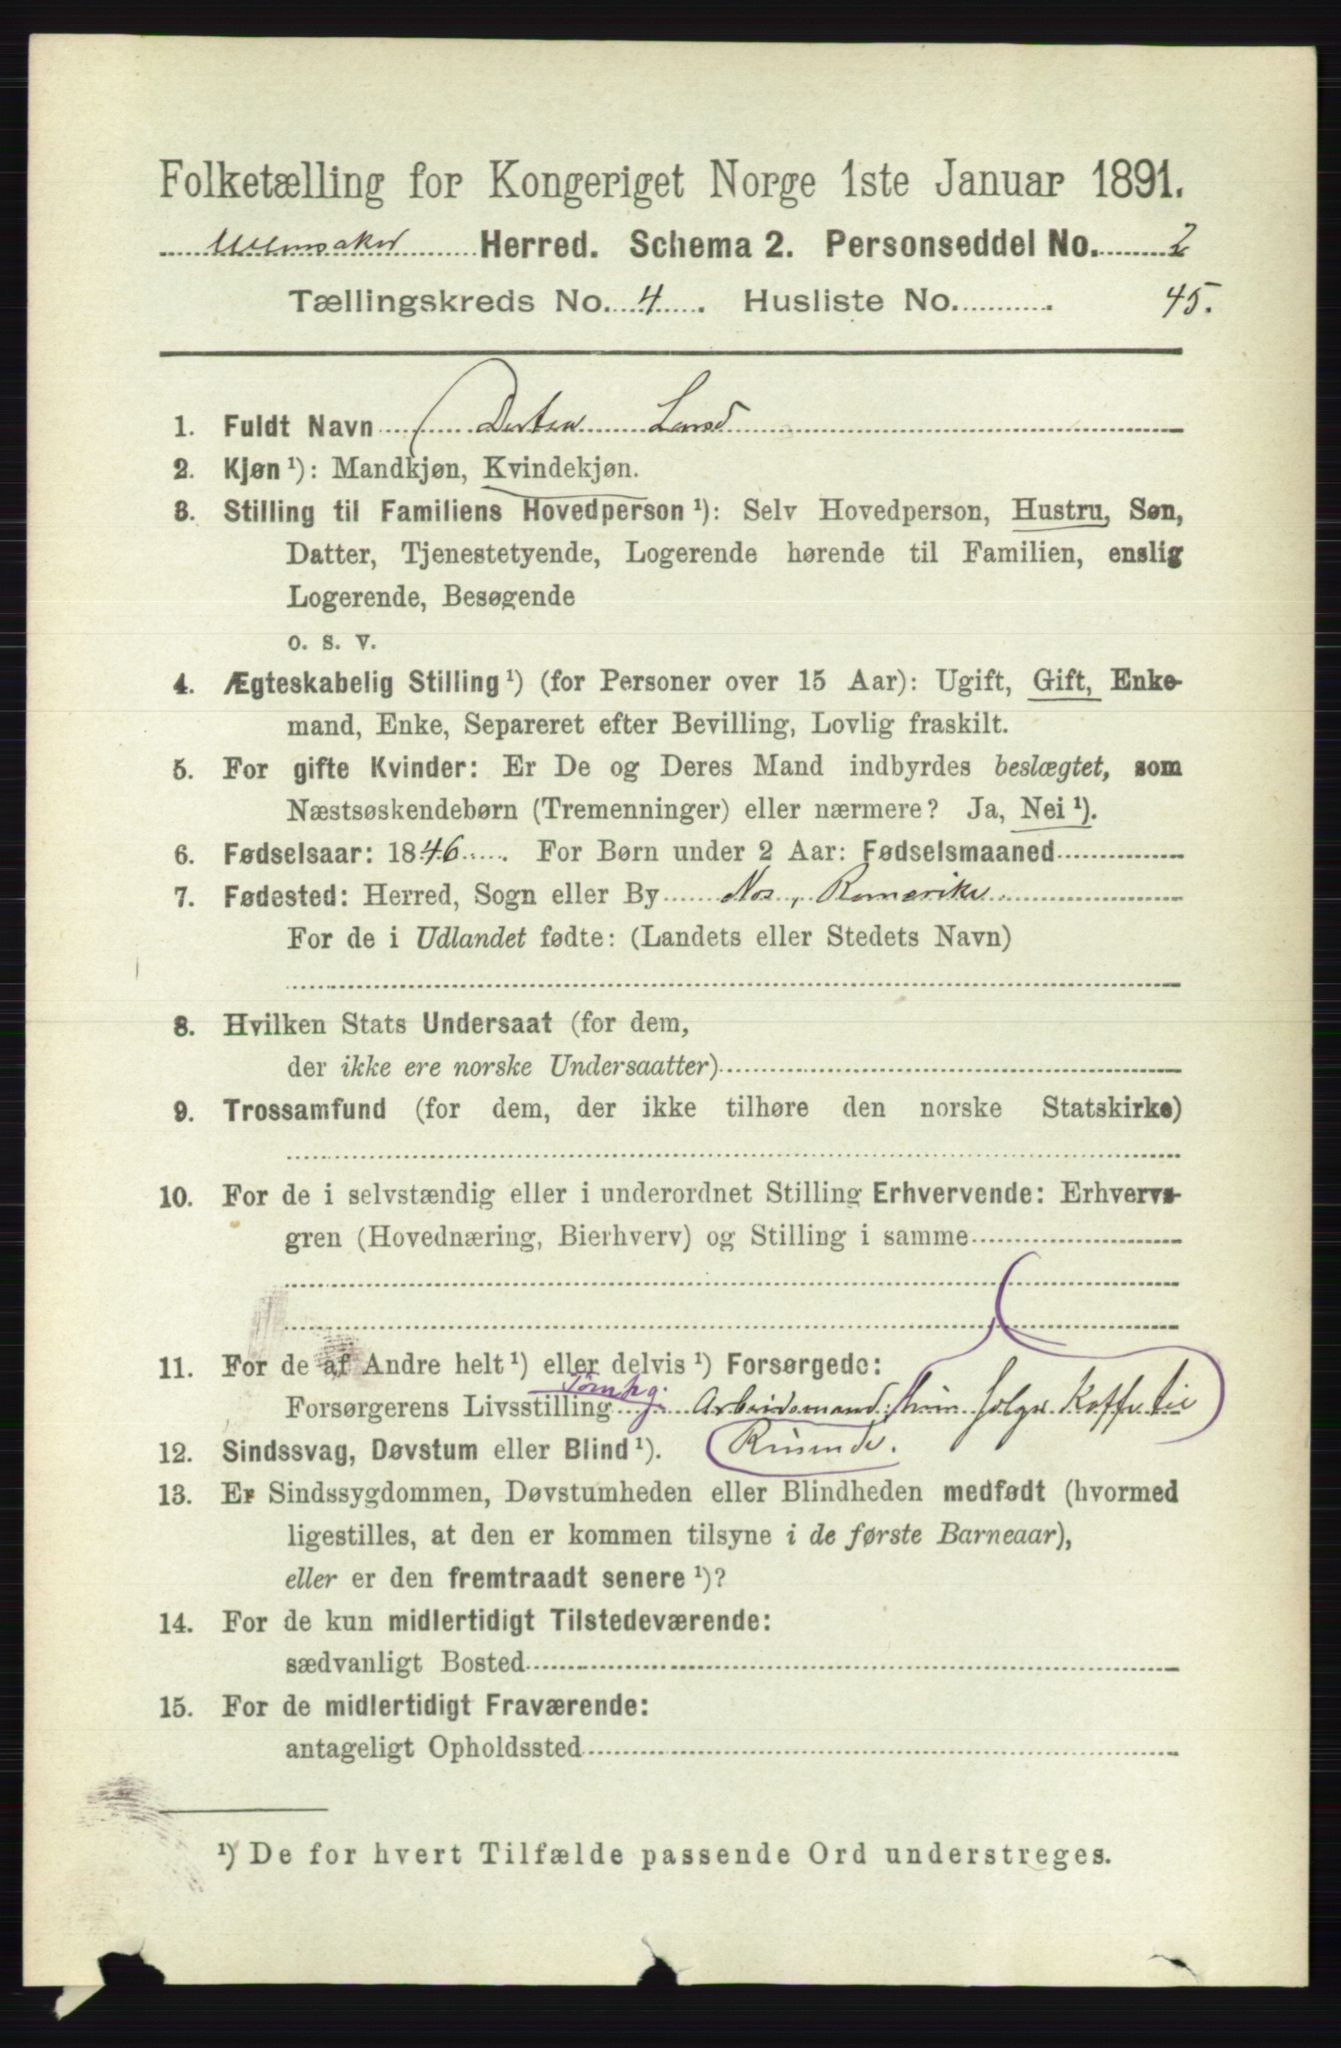 Folketælling for Kongeriget Norge 1ste Januar 1891.
Ullensaker Herred. Schema 2. Personseddel No. 2
Tællingskreds No. 4. Husliste No. 45.
1. Fuldt Navn Dortea Larsd
2. Kjøn ¹): Mandkjøn, Kvindekjøn.
3. Stilling til Familiens Hovedperson ¹): Selv Hovedperson, Hustru, Søn,
Datter, Tjenestetyende, Logerende hørende til Familien, enslig
Logerende, Besøgende
o. s. v.
4. Ægteskabelig Stilling ¹) (for Personer over 15 Aar): Ugift, Gift, Enke-
mand, Enke, Separeret efter Bevilling, Lovlig fraskilt.
5. For gifte Kvinder: Er De og Deres Mand indbyrdes beslægtet, som
Næstsøskendebørn (Tremenninger) eller nærmere? Ja, Nei ¹).
6. Fødselsaar: 1846. For Børn under 2 Aar: Fødselsmaaned
7. Fødested: Herred, Sogn eller By Nes, Romerike
For de i Udlandet fødte: (Landets eller Stedets Navn)
8. Hvilken Stats Undersaat (for dem,
der ikke ere norske Undersaatter)
9. Trossamfund (for dem, der ikke tilhøre den norske Statskirke)
10. For de i selvstændig eller i underordnet Stilling Erhvervende: Erhvervs-
gren (Hovednæring, Bierhverv) og Stilling i samme
11. For de af Andre helt ¹) eller delvis ¹) Forsørgede:
Forsørgerens Livsstilling Arbeidsmand, sælger Kaffe til
12. Sindssvag, Døvstum eller Blind ¹). Reisende.
13. Er Sindssygdommen, Døvstumheden eller Blindheden medfødt (hvormed
ligestilles, at den er kommen tilsyne i de første Barneaar),
eller er den fremtraadt senere ¹)?
14. For de kun midlertidigt Tilstedeværende:
sædvanligt Bosted
15. For de midlertidigt Fraværende:
antageligt Opholdssted
¹) De for hvert Tilfælde passende Ord understreges.